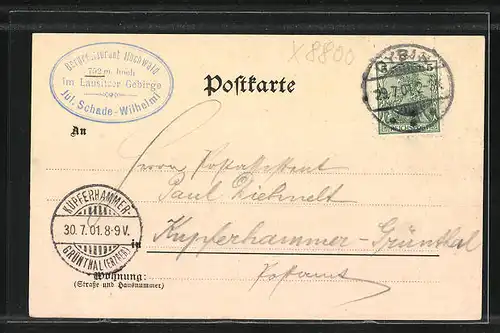 Bergrestaurant Hochwald
752 m. hoch
im Lausitzer Gebirge
Jul. Schade-Wilhelmi
X8800
Postkarte
29.7.01
5 5
An
Herrn Postassistent
Paul Liehmelt
KUPFERHAMMER-
30.7.01.8-9V.
GRÜNTHAL (ERZGEB)
in Kupferhammer-Grünthal
Postamt
Wohnung:
(Straße und Hausnummer)